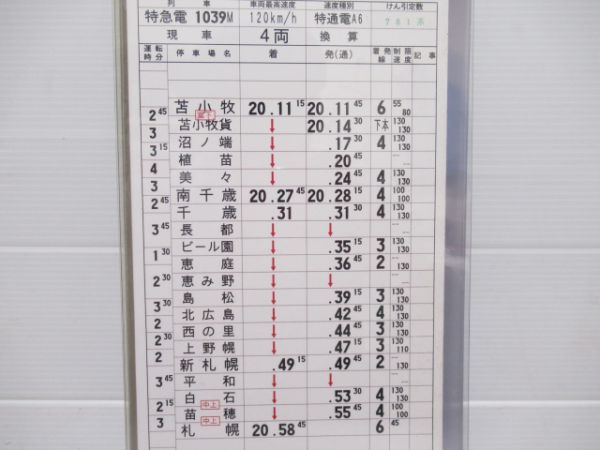 列車 車両最高速度 速度種別 けん引定数
特急電 1039M 120km/h 特通電A6 781系
現車 4両 換算
運転時分 停車場名 着 発(通) 着発線 制限速度 記事
苫小牧 20.11 15 20.11 45 6 55 80
2 45 苫小牧貨 ↓ 20.14 30 下本 130 130
3 沼ノ端 ↓ .17 30 4 130 130
3 15 植苗 ↓ .20 45
4 美々 ↓ .24 45 4 130 130
3 南千歳 20.27 45 20.28 15 4 100 100
2 45 千歳 .31 .31 30 4 130 130
長都 ↓ ↓
3 45 ビール園 ↓ .35 15 3 130 130
1 30 恵庭 ↓ .36 45 2 130
恵み野 ↓ ↓
2 30 島松 ↓ .39 15 3 130 130
3 30 北広島 ↓ .42 45 4 130 130
2 西の里 ↓ .44 45 3 130 130
2 30 上野幌 ↓ .47 15 3 130 110
2 新札幌 .49 15 .49 45 2 130
平和 ↓ ↓
3 45 白石 ↓ .53 30 4 130 130
2 15 中上 苗穂 ↓ .55 45 4 100 100
3 中上 札幌 20.58 45 6 45